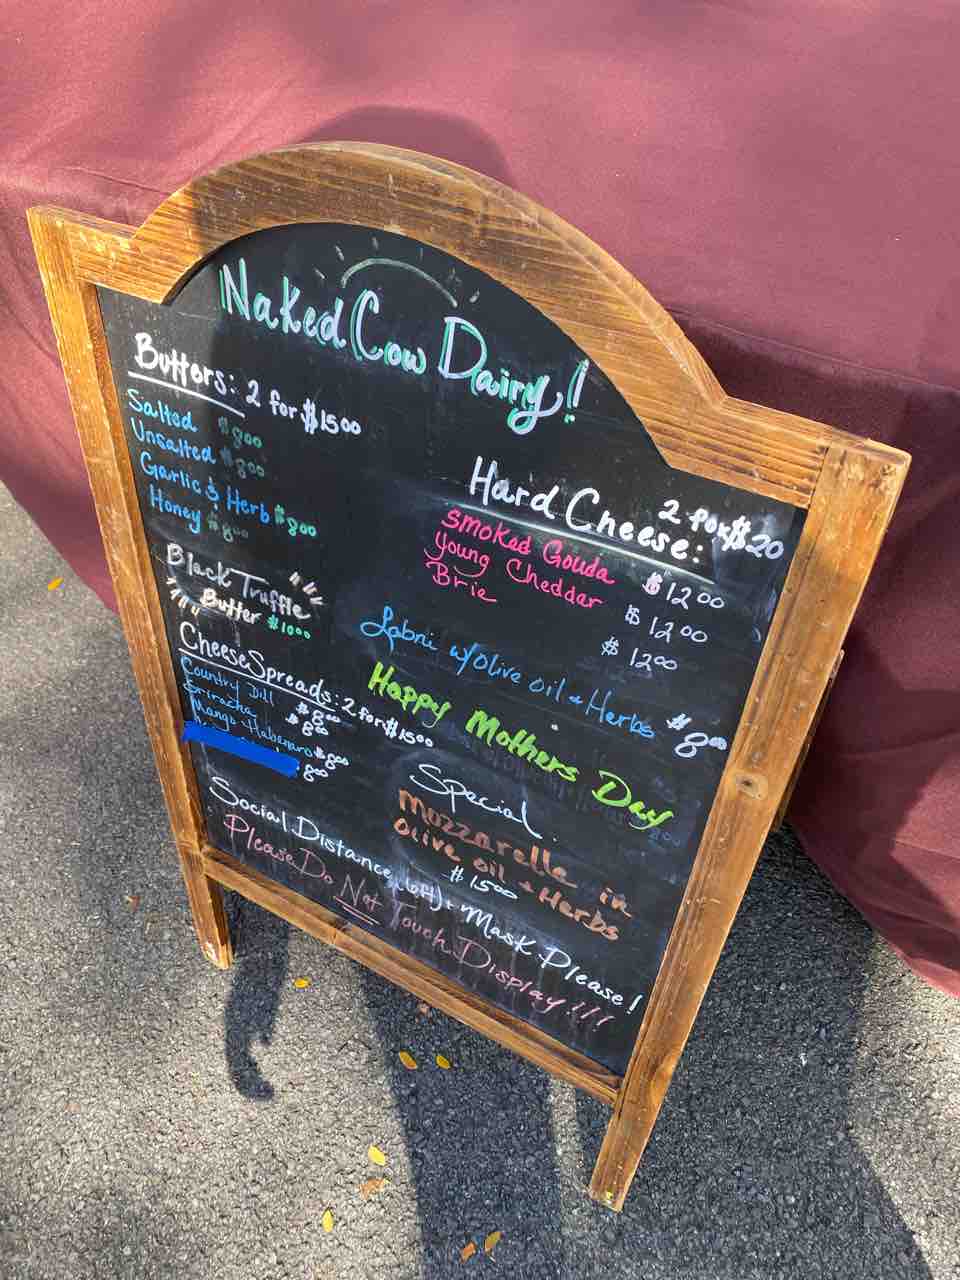 Naked Cow Dairy!!
Butters: 2 for $15.00
Salted $8.00
Unsalted $8.00
Garlic & Herb $8.00
Honey $8.00
Black Truffle
Butter $10.00
Cheese Spreads: 2 for $15.00
Country Dill $8.00
Sriracha $8.00
Mango Habanero $8.00
8.00
Hard Cheese: 2 for $20
Smoked Gouda $12.00
Young Chedder $12.00
Brie $12.00
Labni w/Olive oil + Herbs $8.00
Happy Mothers Day
Special.
Mozzarelle in
Olive oil + Herbs
$15.00
Social Distance (6ft) + Mask Please!
Please Do Not Touch Display!!!